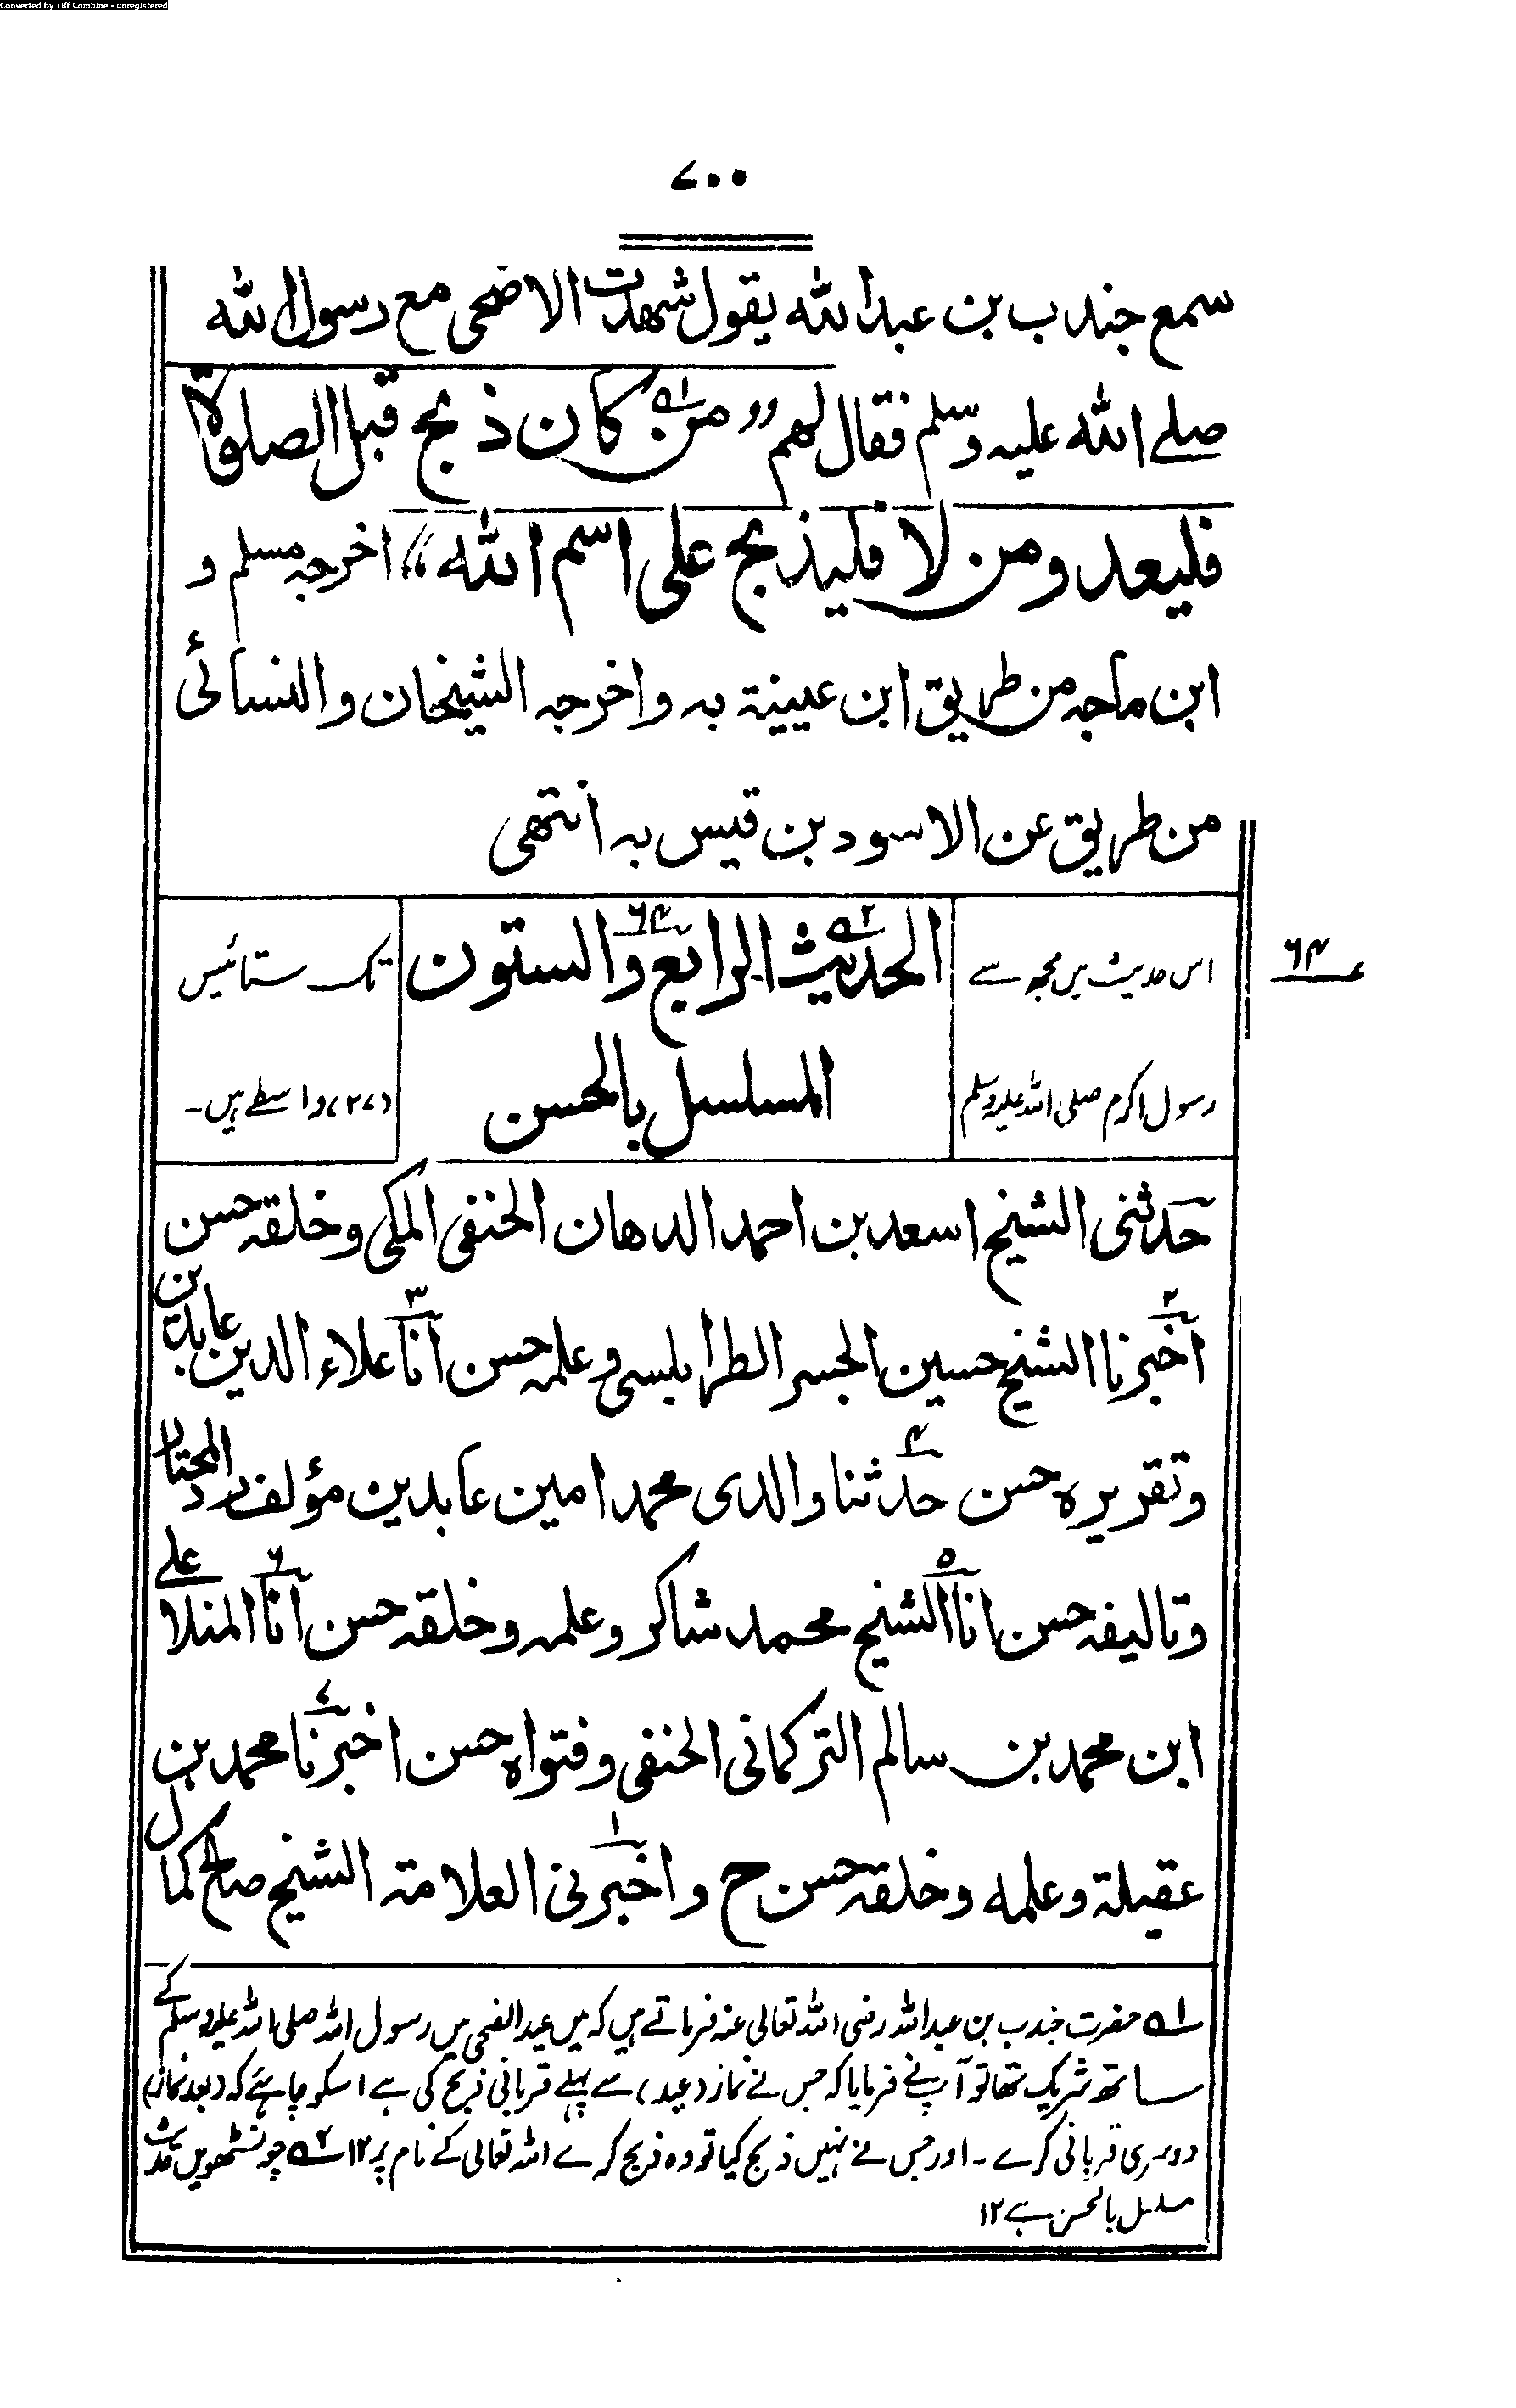 Converted by Tiff Combine - unregistered
۷۰۰
سمع جندب بن عبد الله يقول شهدت الاضحى مع رسول الله
صلے الله عليه وسلم فقال لهم ,, من ۱ے كان ذبح قبل الصلوة
فليعد ومن لا فليذبح على اسم الله ،، اخرجه مسلم و
ابن ماجه من طريق ابن عيينة به واخرجه الشيخان والنسائىء
من طريق عن الاسود بن قيس به انتهى
۶۴
اس حدیث میں مجھ سے
رسول اکرم صلی اللہ علیہ وسلم
الحديث ۲ے الرابع ۶۴ والستون
المسلسل بالحسن
تک ستائیس
(۲۷) واسطے ہیں۔
حدثنى الشيخ اسعد بن احمد الدهان الحنفى المكى وخلقه حسن
۲ اخبرنا الشيخ حسين الجسر الطرابلسى وعلمه حسن ۳ انا علاء الدين بن عابدين
وتقريره حسن ۴ حدثنا والدى محمد امين عابدين مؤلف رد المحتار
وتاليفه حسن انا ۵ الشيخ محمد شاكر وعلمه وخلقه حسن ۶ انا المنلا علے
ابن محمد بن سالم التركمانى الحنفى وفتواه حسن ۷ اخبرنا محمد بن
عقيلة وعلمه وخلقه حسن ح و ۱ اخبرنى العلامة الشيخ صالح كمال
۱ے حضرت جندب بن عبد اللہ رضی اللہ تعالی عنہ فرماتے ہیں کہ میں عید الضحی میں رسول اللہ صلی اللہ علیہ وسلم کے
ساتھ شریک تھا تو آپ نے فرمایا کہ جس نے نماز (عید) سے پہلے قربانی ذبح کی ہے اسکو چاہئے کہ (بعد نماز)
دوسری قربانی کرے۔ اور جس نے نہیں ذبح کیا تو وہ ذبح کرے اللہ تعالی کے نام پر ۱۲ ۲ے چونسٹھویں حدیث
مسلسل بالحسن ہے ۱۲